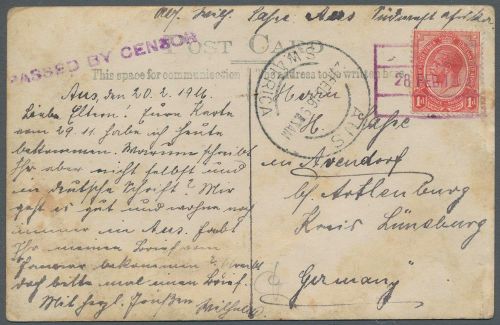 Abs. Wilh. Sasse Aus Südwest Afrika
PASSED BY CENSOR
POST CARD
This space for communication
The address to be written here
Aus, den 20.2.1916.
Liebe Eltern! Eure Karte
vom 29.11 habe ich heute
bekommen. Warum schreibt
Ihr nicht selbst und
in deutsche Schrift? Mir
geht es gut und wohne noch
immer in Aus. Habt
Ihr meinen Brief vom
Januar bekommen? Schreibt
doch bitte mal einen Brief.
Mit herzl. Grüßen
Wilhelm
Herrn
H. Sasse
in Avendorf
b/ Artlenburg
Kreis Lüneburg
Germany
S.W. AFRICA
AUS
28 FEB
1d 1d